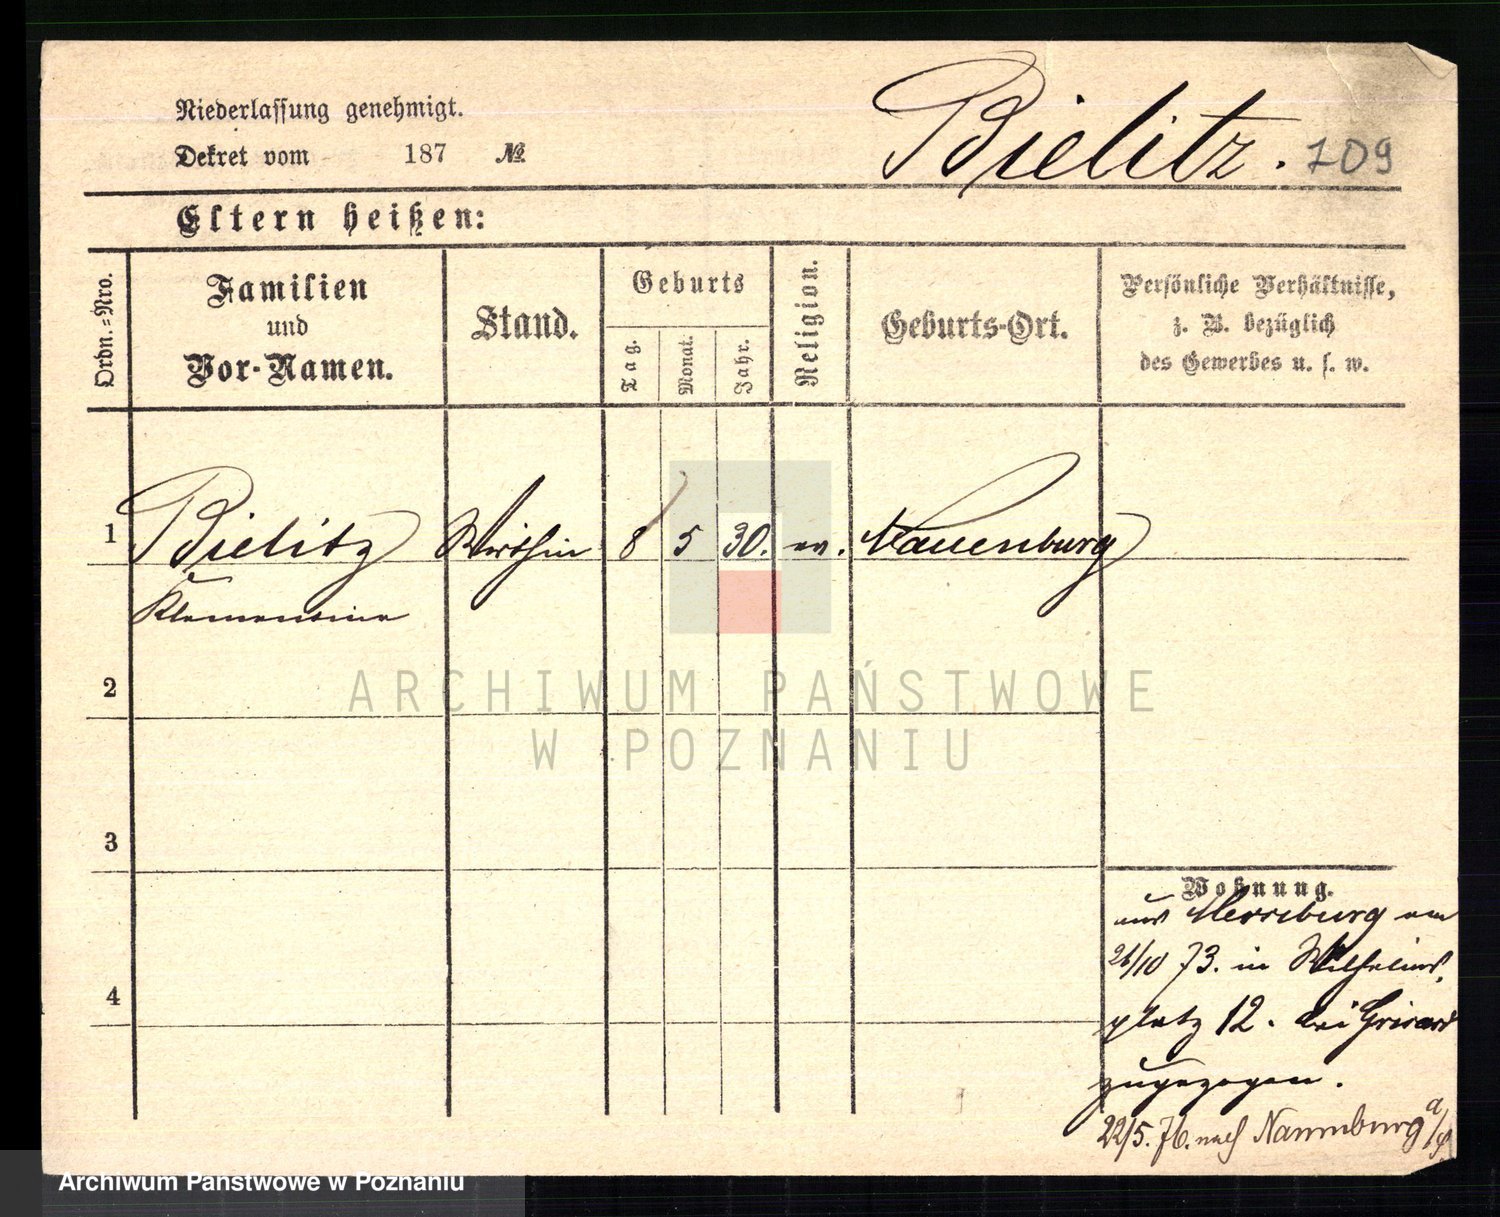 Niederlassung genehmigt.
Dekret vom 187 №
Bielitz. 109
Eltern heißen:
Ordn.=Nro.
Familien
und
Vor-Namen.
Stand.
Geburts
Tag.
Monat.
Jahr.
Religion.
Geburts-Ort.
Persönliche Verhältnisse,
z. B. bezüglich
des Gewerbes u. s. w.
1 Bielitz Wirthin 8 5 30. ev. Nauenburg
Klementine
2
ARCHIWUM PAŃSTWOWE
W POZNANIU
3
4
Wohnung.
aus Merseburg am
26/10 73. in Wilhelms
platz 12. bei
zugezogen.
22/5. 76. nach Naumburg a/S.
Archiwum Państwowe w Poznaniu